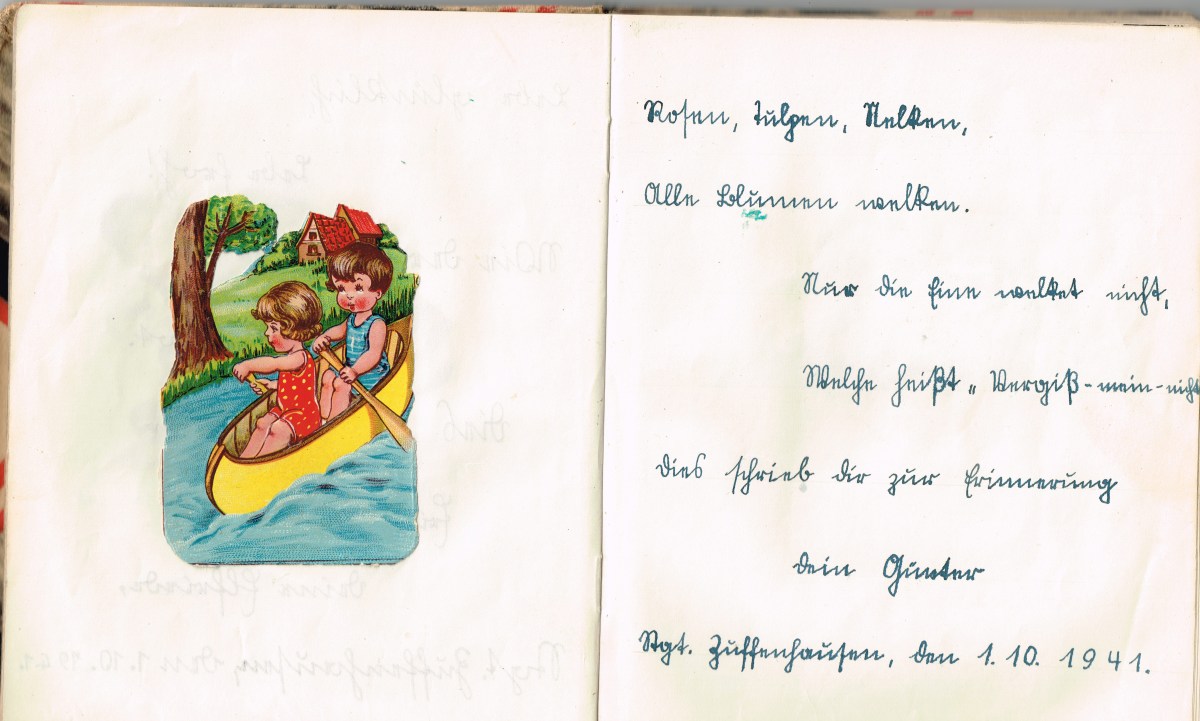 Rosen, Tulpen, Nelken,
Alle Blumen welken.
Nur die Eine welket nicht,
Welche heißt „Vergiß-mein-nicht
Dies schrieb dir zur Erinnerung
dein Gunter
Stgt. Zuffenhausen, den 1.10.1941.